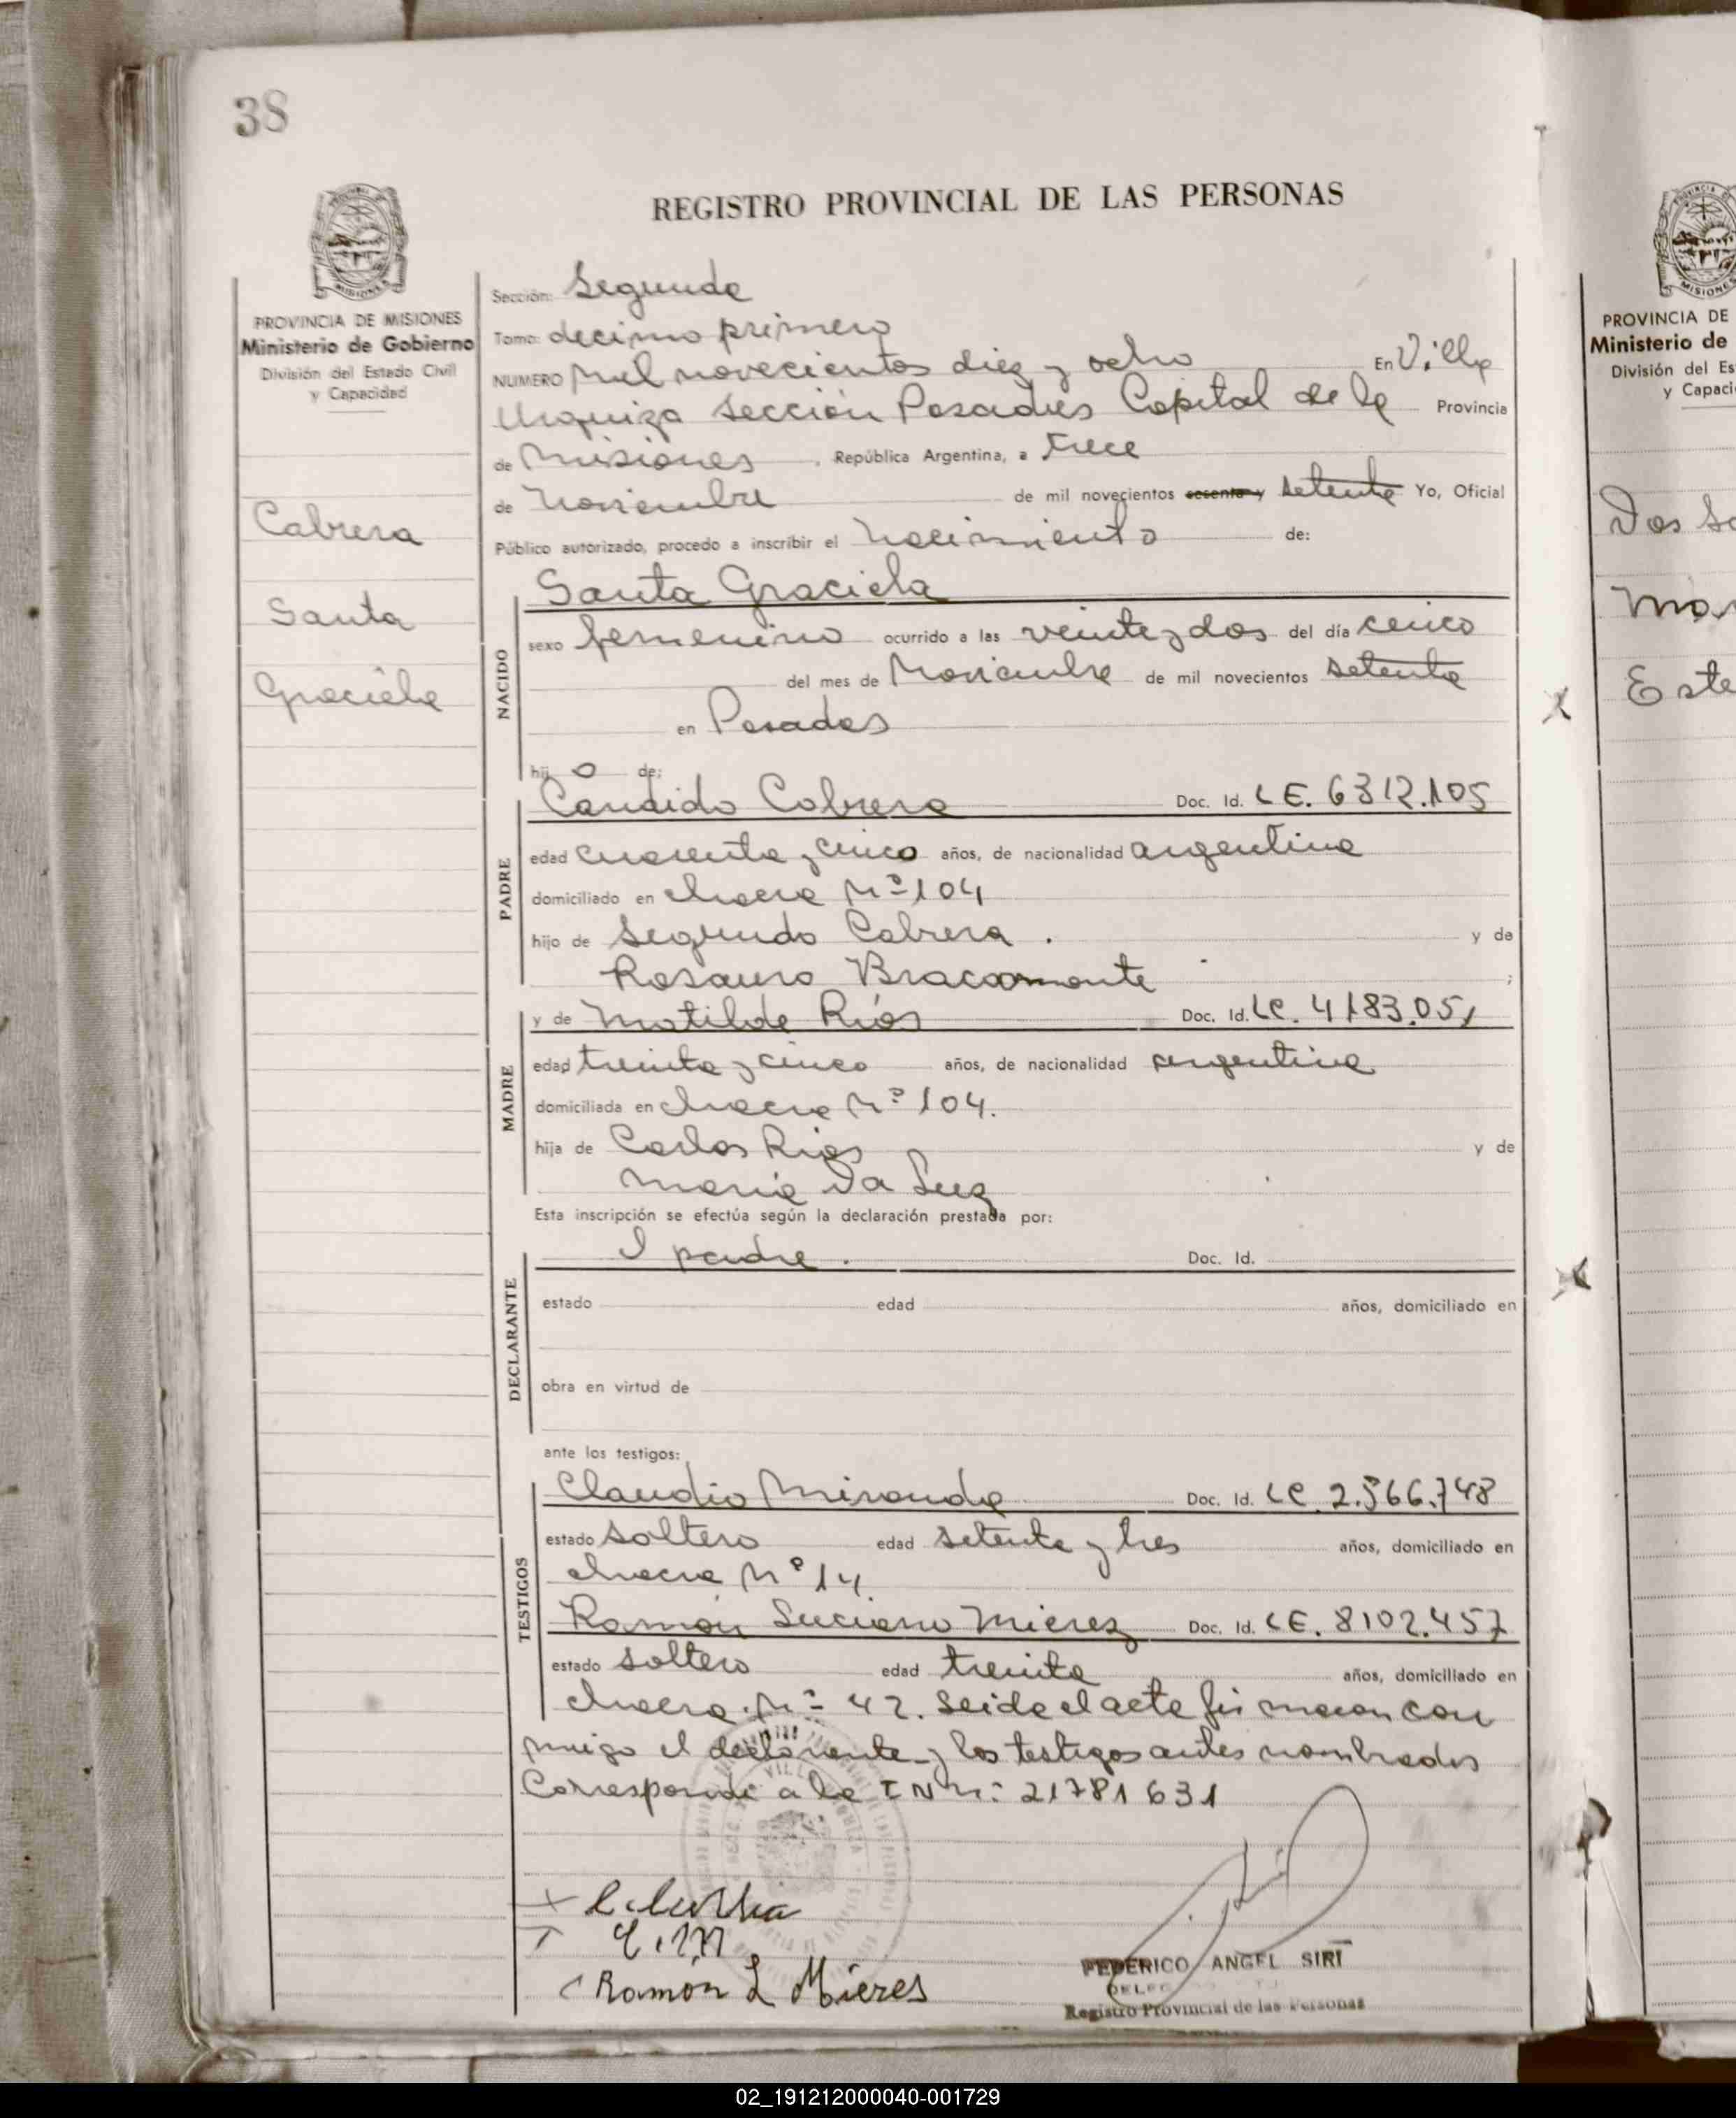 38
REGISTRO PROVINCIAL DE LAS PERSONAS
PROVINCIA DE MISIONES
Ministerio de Gobierno
División del Estado Civil
y Capacidad
Cabrera
Santa
Graciela
Sección: Segunda
Tomo: decimo primero
NUMERO mil novecientos diez y ocho En Villa
Urquiza sección Posadas Capital de la Provincia
de Misiones, República Argentina, a trece
de Noviembre de mil novecientos sesenta y setenta Yo, Oficial
Público autorizado, procedo a inscribir el nacimiento de:
NACIDO
Santa Graciela
sexo femenino ocurrido a las veinte y dos del día cinco
del mes de Noviembre de mil novecientos setenta
en Posadas
hij o de:
PADRE
Candido Cabrera Doc. Id. LE. 6312.105
edad cuarenta y cinco años, de nacionalidad argentina
domiciliado en chacra Nº 104
hijo de Segundo Cabrera. y de
Rosauro Bracamonte ;
MADRE
y de Matilde Ríos Doc. Id. LC. 4183.051
edad treinta y cinco años, de nacionalidad argentina
domiciliada en chacra Nº 104.
hija de Carlos Rios y de
Maria Da Luz
Esta inscripción se efectúa según la declaración prestada por:
DECLARANTE
El padre. Doc. Id.
estado edad años, domiciliado en
obra en virtud de
ante los testigos:
TESTIGOS
Claudio Miranda Doc. Id. LC 2.566.748
estado soltero edad setenta y tres años, domiciliado en
chacra Nº 14
Ramón Luciano Mierez Doc. Id. LE. 8102.457
estado soltero edad treinta años, domiciliado en
chacra Nº 42. Leida el acta firmaron con
migo el declarante y los testigos antes nombrados
Corresponde a la I N Nº 21781631
C. M
Ramón L Mieres
FEDERICO ANGEL SIRI
Registro Provincial de las Personas
PROVINCIA DE
Ministerio de
División del Es
y Capaci
Dos Sa
Mar
Este
02_191212000040-001729